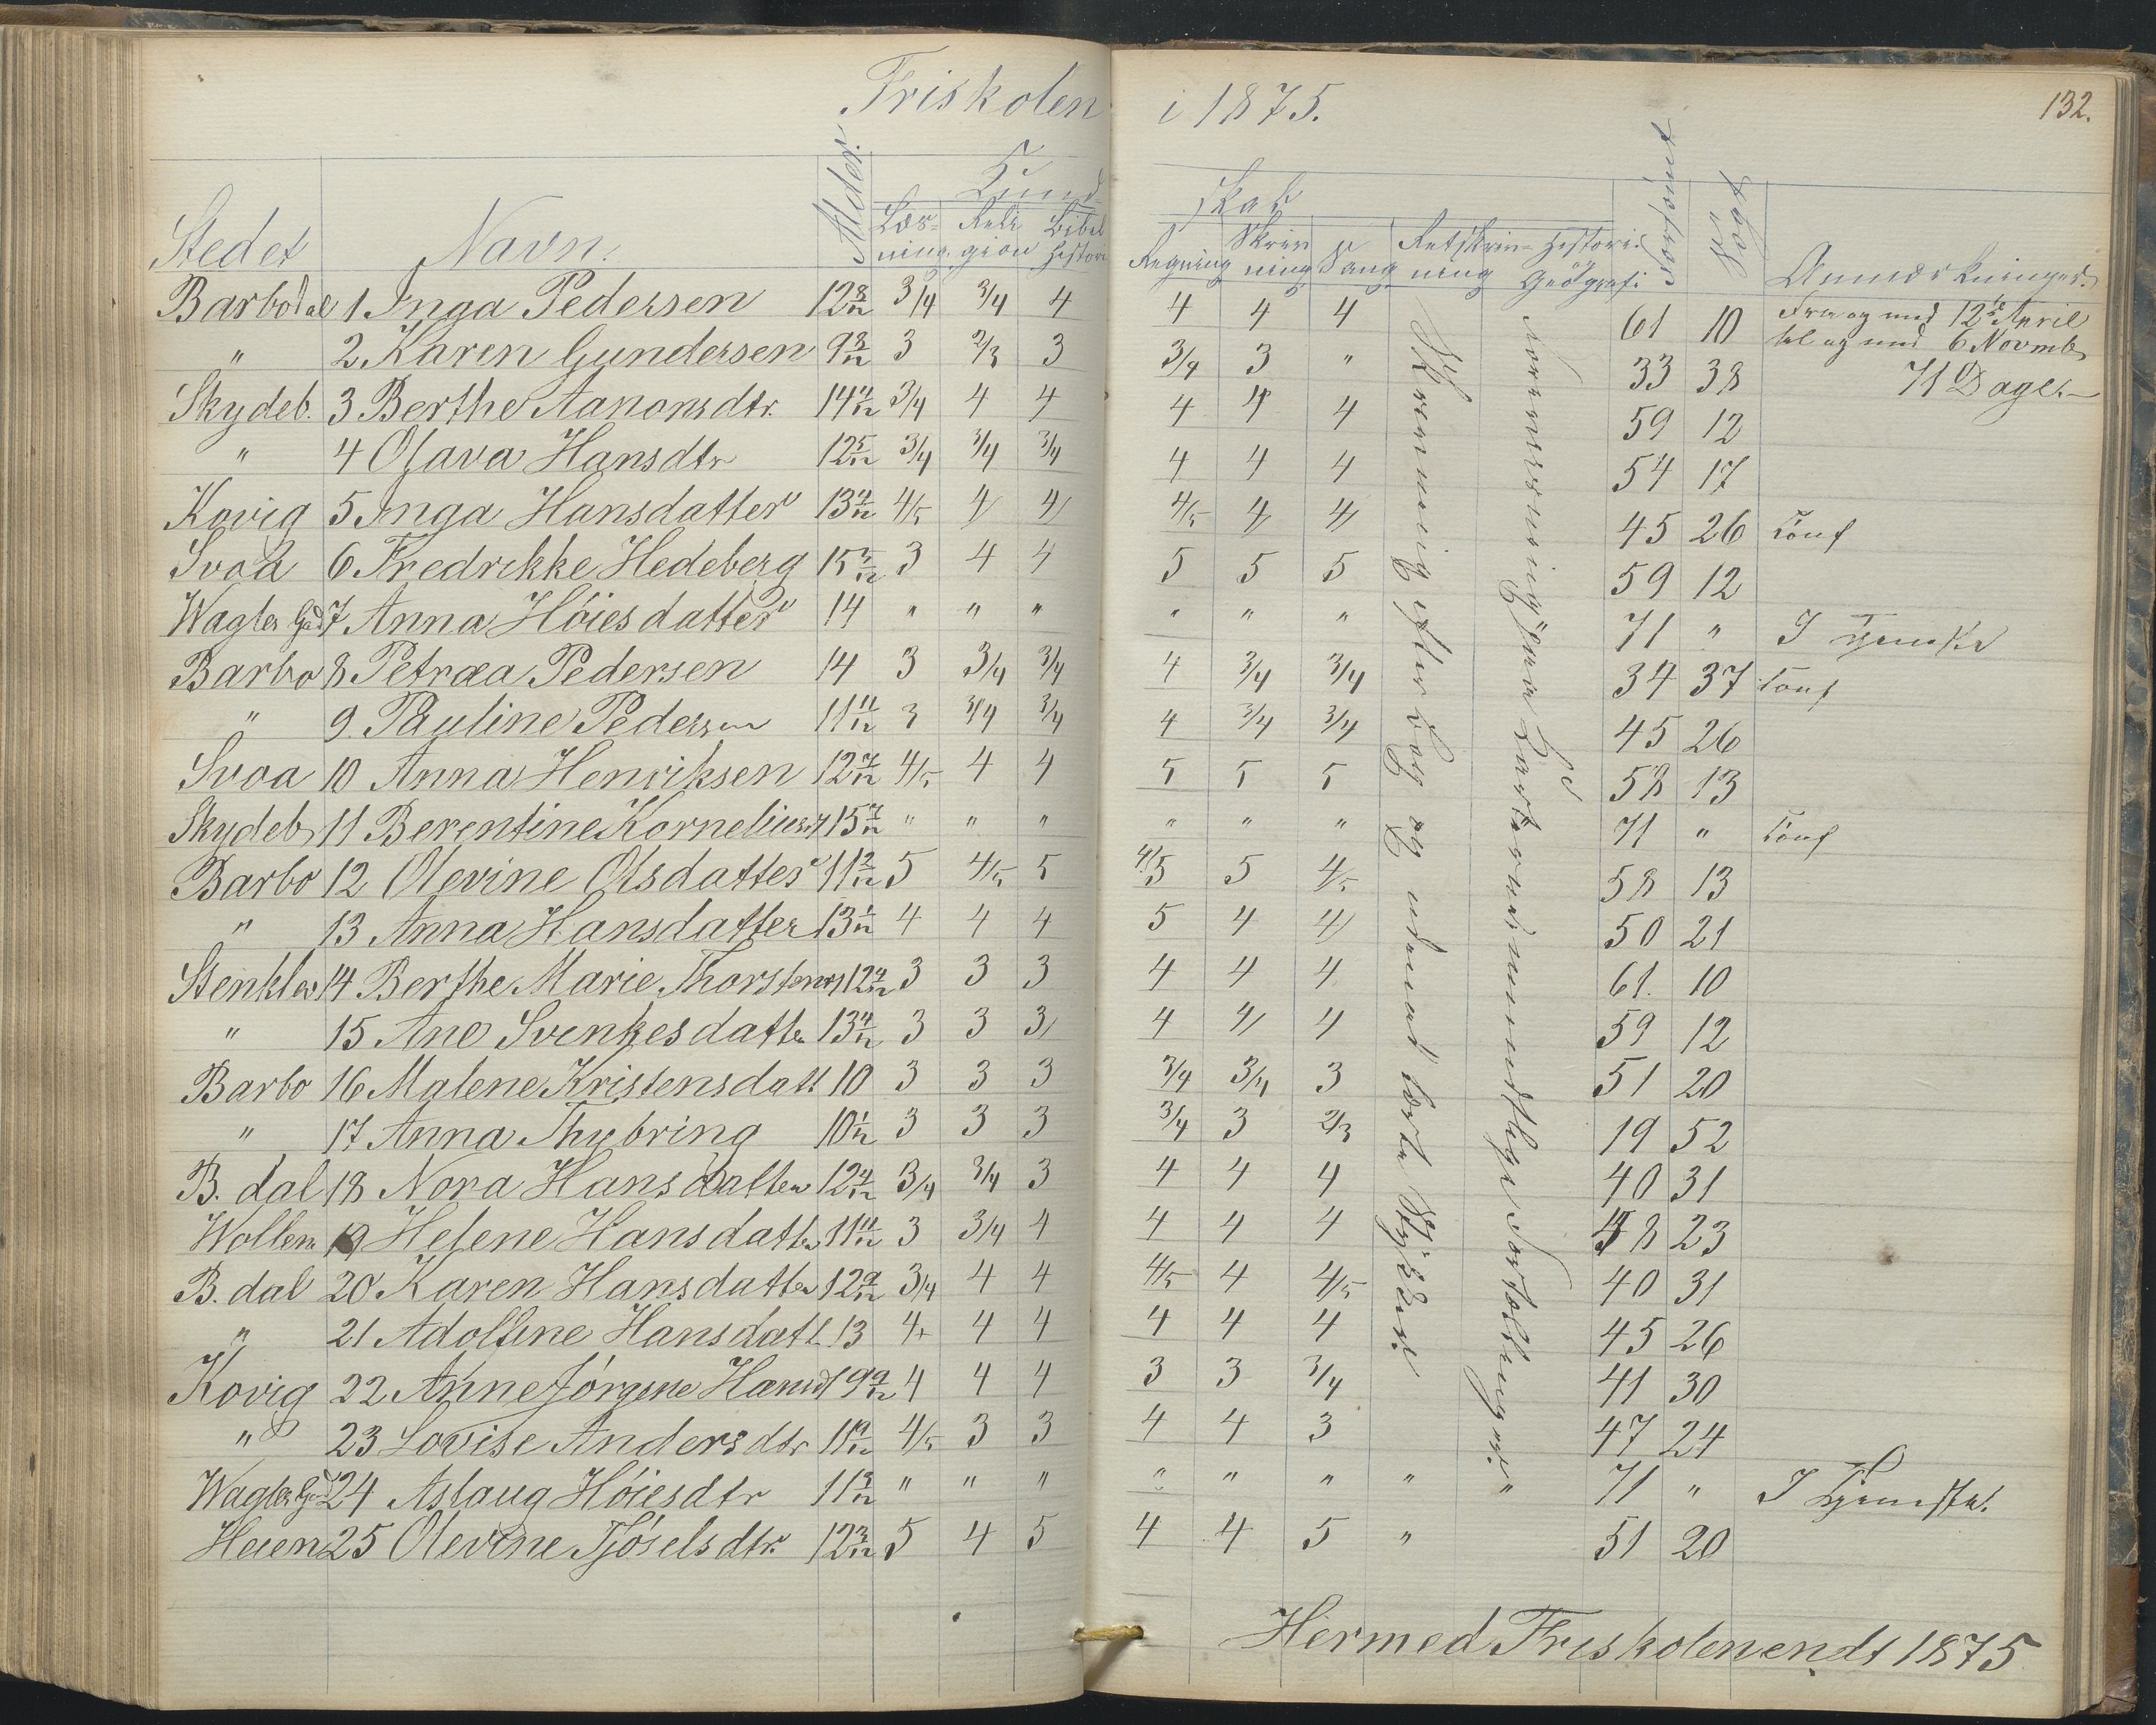 Friskolen i 1875.
132.
Kund skab
Stedet Navn. Alder. Læs-ning. Reli gion Bibel historie Regning Skriv ning Sang Retskriv-ning Historie Geografi Forsømt Søgt Anmærkninger.
Barbodal 1 Inga Pedersen 12 8/12 3/4 3/4 4 4 4 4 61 10 Fra og med 12te April
" 2 Karen Gundersen 9 8/12 3 2/3 3 3/4 3 " 33 38 til og med 6 Novemb
71 Dage.
Skydeb. 3 Berthe Aanonsdtr. 14 4/12 3/4 4 4 4 4 4 59 12
" 4 Olava Hansdtr 12 5/12 3/4 3/4 3/4 4 4 4 54 17
Kovig 5 Inga Hansdatter 13 4/12 4/5 4 4 4/5 4 4 45 26 Conf
Svoa 6 Fredrikke Hedeberg 15 5/12 3 4 4 5 5 5 59 12
Wagter Gd 7 Anna Höiesdatter 14 " " " " " " 71 " I Tjeneste
Barbo 8 Petræa Pedersen 14 3 3/4 3/4 4 3/4 3/4 34 37 Conf
" 9. Pauline Pedersen 11 11/12 3 3/4 3/4 4 3/4 3/4 45 26
Svoa 10 Anna Henriksen 12 7/12 4/5 4 4 5 5 5 58 13
Skydeb 11 Berentine Korneliusdt 15 7/12 " " " " " " 71 " Conf
Barbo 12 Olevine Olsdatter 11 2/12 5 4/5 5 4/5 5 4/5 58 13
" 13 Anna Hansdatter 13 1/12 4 4 4 5 4 4 50 21
Stenklev 14 Berthe Marie 3 3 3 4 4 4 61. 10
" 15 Ane Svenkesdatter 13 4/12 3 3 3 4 4 4 59 12
Barbo 16 Malene Kristensdatt 10 3 3 3 3/4 3/4 3 51 20
" 17 Anna Thybring 10 1/12 3 3 3 3/4 3 2/3 19 52
B. dal 18 Nora Hansdatter 12 4/12 3/4 3/4 3 4 4 4 40 31
Wollen 19 Helene Hansdatter 11 11/12 3 3/4 4 4 4 4 48 23
B. dal 20 Karen Hansdatter 12 9/12 3/4 4 4 4/5 4 4/5 40 31
" 21 Adolfine Hansdatt. 13 4+ 4 4 4 4 4 45 26
Kovig 22 Anne Jörgine Hansd 9 9/12 4 4 4 3 3 3/4 41 30
" 23 Lovise Andersdtr 11 9/12 4/5 3 3 4 4 3 47 24
Wagter Gd 24 Aslaug Höiesdtr 11 3/12 " " " " " " " " 71 " I Tjeneste.
Heien 25 Olevine Tjöselsdtr. 12 3/12 5 4 5 4 4 5 " 51 20
Skrivning efter Bog og udenad lærte Stykker.
Forevisning paa Kartet med mundtlige Fortællinger.
Hermed Friskolen endt 1875